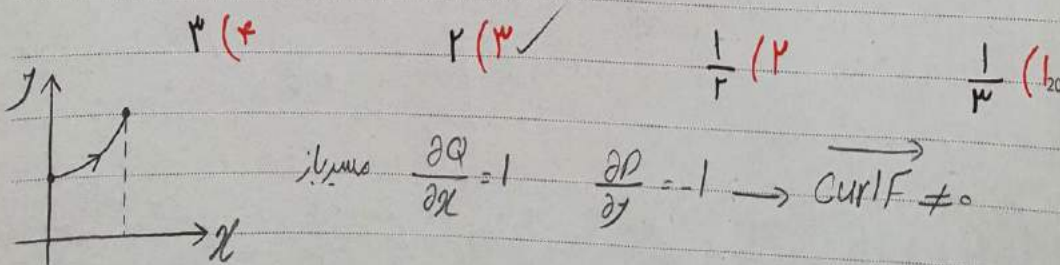 ۱) ۱/۳ ۲) ۱/۲ ۳) ۲ ✓ ۴) ۳
y
مسیر باز ∂Q/∂x = 1 ∂P/∂y = -1 → Curl F⃗ ≠ 0
x